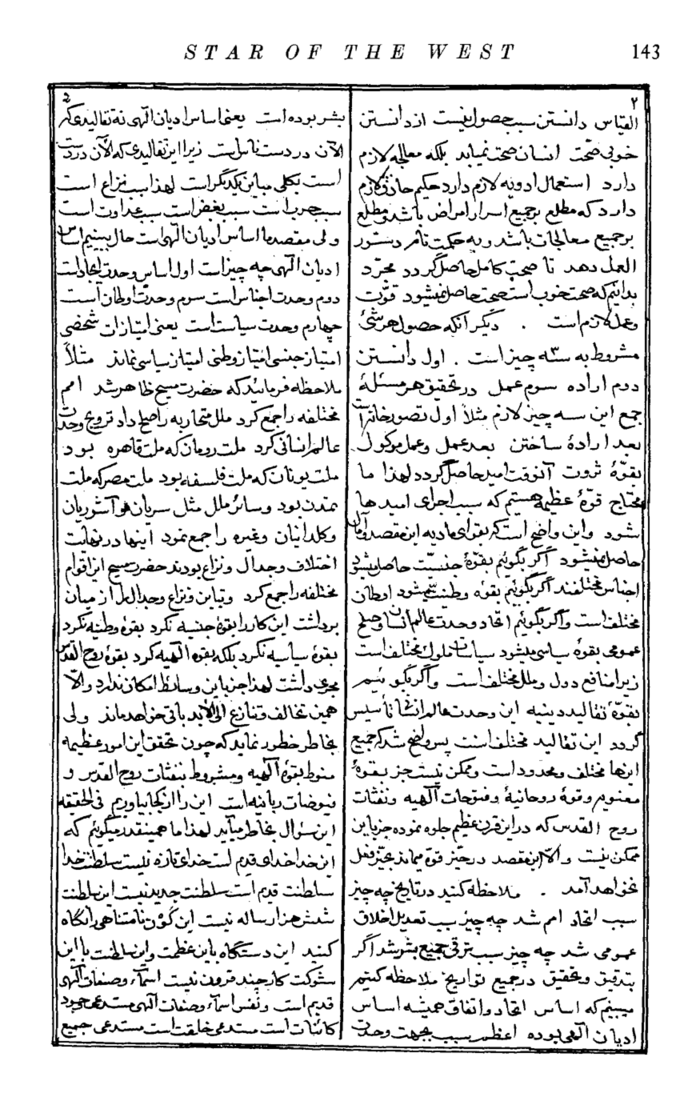 STAR OF THE WEST 143
٢
القیاس دانستن سبب حصول نیست از دانستن
خوبی صحّت انسان صحّت نمیابد بلکه معالجه لازم
دارد استعمال ادویه لازم دارد حکیم حاذق لازم
دارد که مطلع بر جمیع اسرار امراض باشد و مطلع
بر جمیع معالجات باشد و به حکمت تام دستور
العمل دهد تا صحت کامل حاصل گردد مجرّد
بدانیم که صحت خوب است صحت حاصل نمیشود قوّت
و عمل لازم است . دیگر آنکه حصول هر شئ
مشروط به سه چیز است . اول دانستن
دوم اراده سوم عمل در تحقیق هر مسئلهٔ
جمع این سه چیز لازم مثلاً اول تصور خانه است
بعد ارادهٔ ساختن بعد عمل و عمل موکول
بقوّهٔ ثروت آنوقت امید حاصل گردد لهذا ما
محتاج قوّهٔ عظیمه هستیم که سبب اجرای امیدها
شود و این واضح است که بقوای مادیه این مقصد و آمال
حاصل نمیشود اگر بگوئیم بقوّهٔ جنسیت حاصل میشود
اجناس مختلفند اگر بگوئیم بقوه وطنیت میشود اوطان
مختلف است و اگر بگوئیم اتحاد و وحدت عالم انسان و صلح
عمومی بقوهٔ سیاسی میشود سیاسات ملوک مختلف است
زیرا منافع دول و ملل مختلف است و اگر بگوئیم
بقوّهٔ تقالید دینیه این وحدت عالم انسانی تأسیس
گردد این تقالید مختلف است پس واضح شد که جمیع
اینها مختلف و محدود است و ممکن نیست جز بقوهٔ
معنویه و قوهٔ روحانیهٔ و فتوحات آلهیه و نفثات
روح القدس که در این قرن عظیم جلوه نموده جز باین
ممکن نیست و الّا این مقصد در حیّز قوّه میماند بحیّز فعل
نخواهد آمد . ملاحظه کنید در تاریخ چه چیز
سبب اتحاد امم شد چه چیز سبب تعدیل اخلاق
عمومی شد چه چیز سبب ترقی جمیع بشر شد اگر
بتدقیق و تحقیق در جمیع تواریخ ملاحظه کنیم
میبینیم که اساس اتحاد و اتفاق همیشه اساس
ادیان آلهی بوده اعظم سبب بجهت وحدت
بشر بوده است یعنی اساس ادیان آلهی نه تقالیدی که
الآن در دست ناس است زیرا این تقالیدی که الآن در دست
است بکلی مباین یکدیگر است لهذا سبب نزاع است
سبب حرب است سبب بغض است سبب عداوت است
ولی مقصد ما اساس ادیان آلهی است حال ببینیم اساس
ادیان آلهی چه چیز است اول اساس وحدت ایجاد است
دوم وحدت اجناس است سوم وحدت اوطان است
چهارم وحدت سیاست است یعنی امتیازات شخصی
امتیاز جنسی امتیاز وطنی امتیاز سیاسی نماند مثلاً
ملاحظه فرمائید که حضرت مسیح ظاهر شد امم
مختلفه را جمع کرد ملل متحاربه را صلح داد ترویج وحدت
عالم انسانی کرد ملت رومان که ملت قاهره بود
ملت یونان که ملت فلسفه بود ملت مصر که ملت
تمدن بود و سائر ملل مثل سریان و آشوریان
و کلدانیان و غیره را جمع نمود اینها در نهایت
اختلاف و جدال و نزاع بودند حضرت مسیح این اقوام
مختلفه را جمع کرد و تباین و نزاع و جدال را از میان
برداشت این کار را بقوهٔ جنسیه نکرد بقوهٔ وطنیه نکرد
بقوهٔ سیاسیه نکرد بلکه بقوه آلهیه کرد بقوهٔ روح القدس
مجری داشت لهذا جز باین وسائط امکان ندارد و الّا
همین تخالف و تنازع الی الابد باقی خواهد ماند ولی
بخاطر خطور نماید که چون تحقق این امور عظیمه
منوط بقوهٔ آلهیه و مشروط بنفثات روح القدس و
فیوضات ربانیه است این را از کجا بیاوریم فی الحقیقه
این سؤال بخاطر میآید لهذا ما همینقدر میگوئیم که
این خدا خدای قدیم است خدای تازه نیست سلطنت خدا
سلطنت قدیم است سلطنت جدید نیست این سلطنت
شش هزار ساله نیست این کَون نامتناهی را نگاه
کنید این دستگاه باین عظمت و این سلطنت با این
شوکت کار چند قرون نیست اسمآء و صفات آلهی
قدیم است و نَفْس اسمآء و صفات آلهی مستدعی وجود
کائنات است مستدعی خلقت است مستدعی جمیع